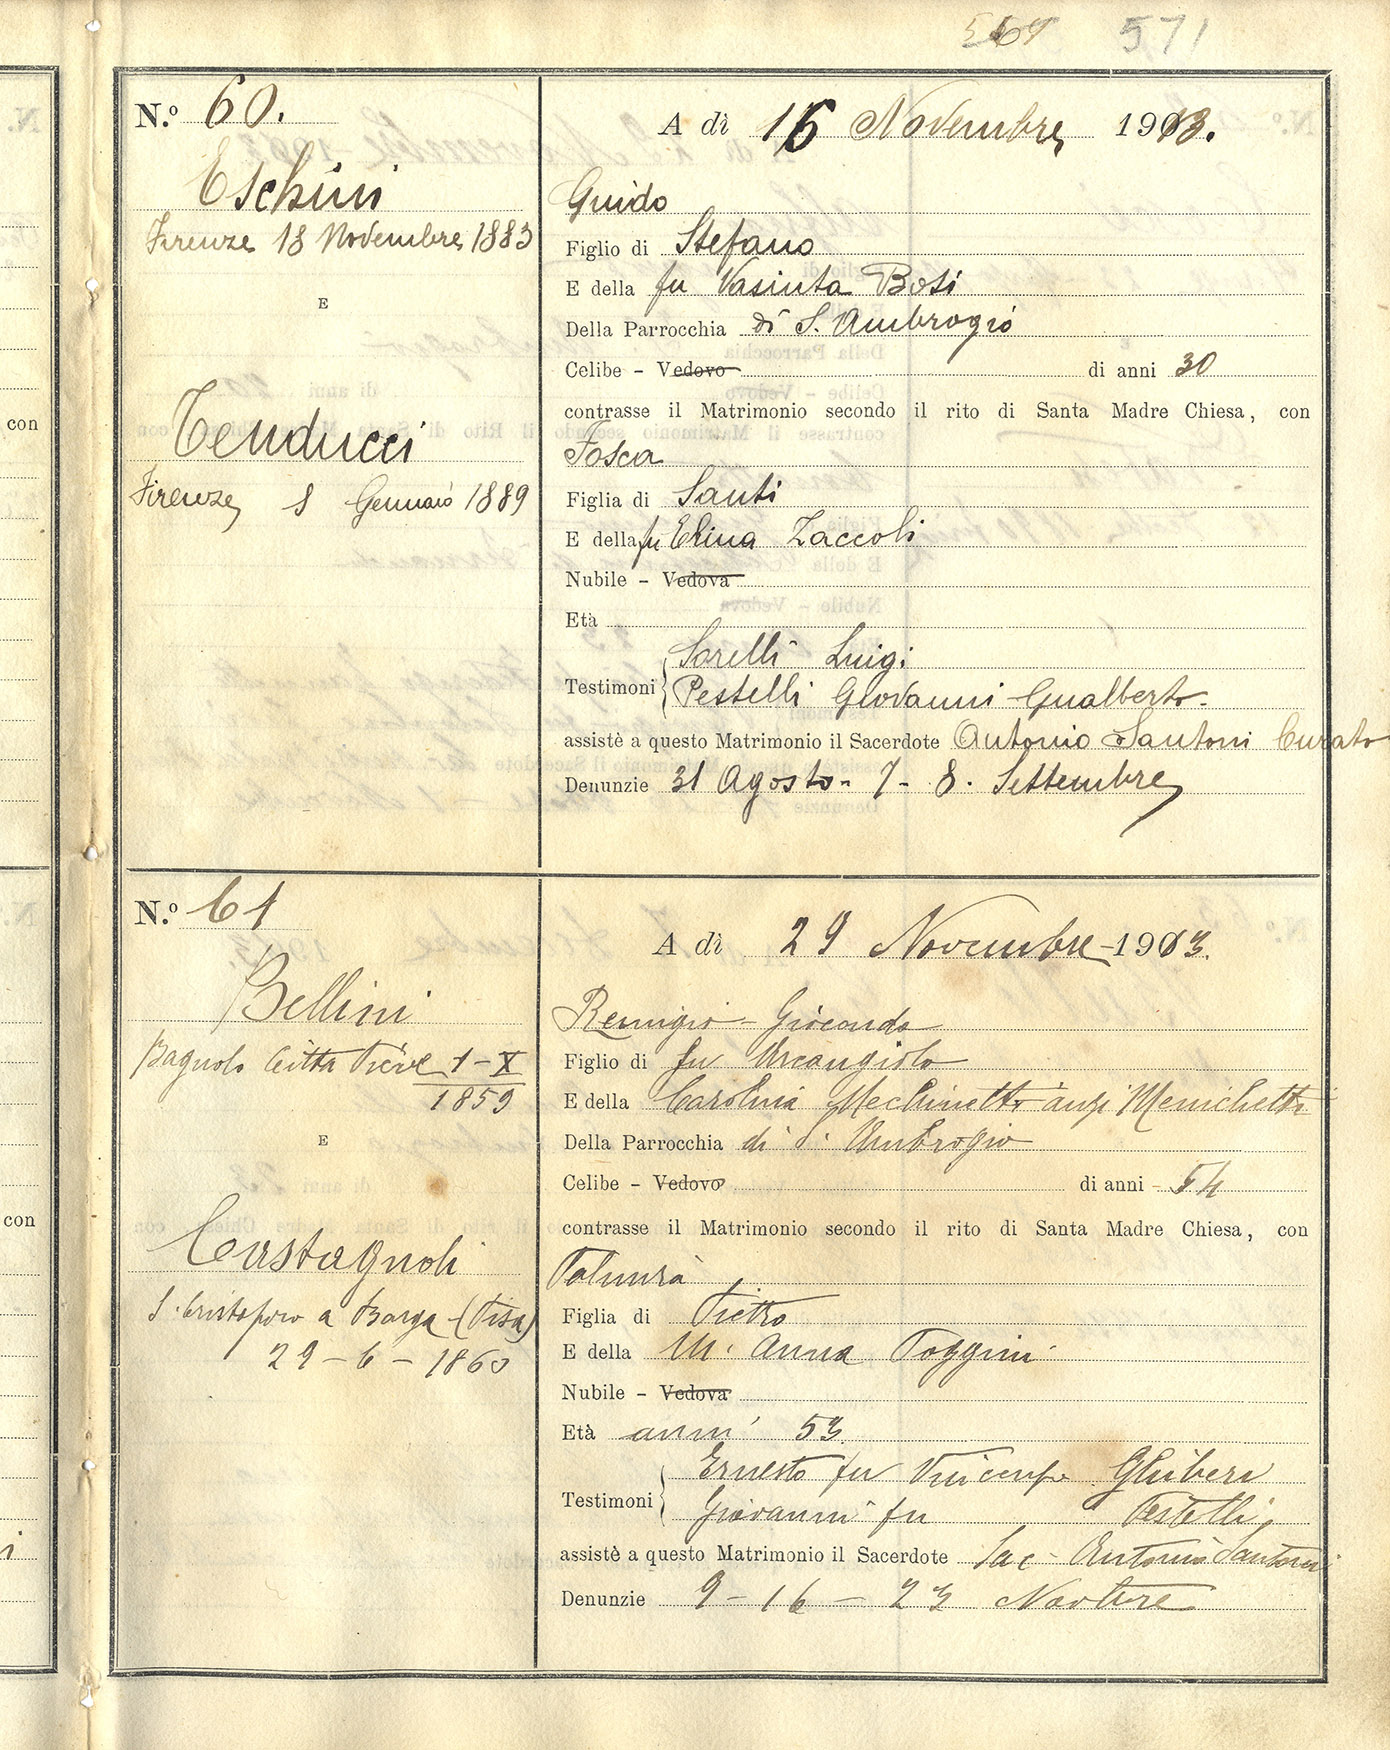 571
N.º 60.
Eschini
Firenze 18 Novembre 1883
E
Tenducci
Firenze, 8 Gennaio 1889
A dì 16 Novembre 1913.
Guido
Figlio di Stefano
E della fu Vasinta Bosi
Della Parrocchia di S. Ambrogio
Celibe - Vedovo di anni 30
contrasse il Matrimonio secondo il rito di Santa Madre Chiesa, con
Fosca
Figlia di Santi
E della fu Elina Zaccoli
Nubile - Vedova
Età
Testimoni
Sorelli Luigi
Pestelli Giovanni Gualberto
assistè a questo Matrimonio il Sacerdote Antonio Santoni Curato
Denunzie 31 Agosto - 7 - 8. Settembre
N.º 61
Bellini
Bagnolo Città Pieve 1-X
1859
E
Castagnoli
S. Cristoforo a Barga (Pisa)
29-6-1860
A dì 29 Novembre 1913.
Remigio - Giocondo
Figlio di fu Arcangiolo
E della Carolina Mechinetti anzi Menichetti
Della Parrocchia di S. Ambrogio
Celibe - Vedovo di anni 54
contrasse il Matrimonio secondo il rito di Santa Madre Chiesa, con
Figlia di Pietro
E della M. Anna Poggini
Nubile - Vedova
Età anni 53
Testimoni
Ernesto fu Vincenzo Ghiberi
Giovanni fu Pestelli
assistè a questo Matrimonio il Sacerdote Sac. Antonio Santoni
Denunzie 9-16-23 Novbre
con
con